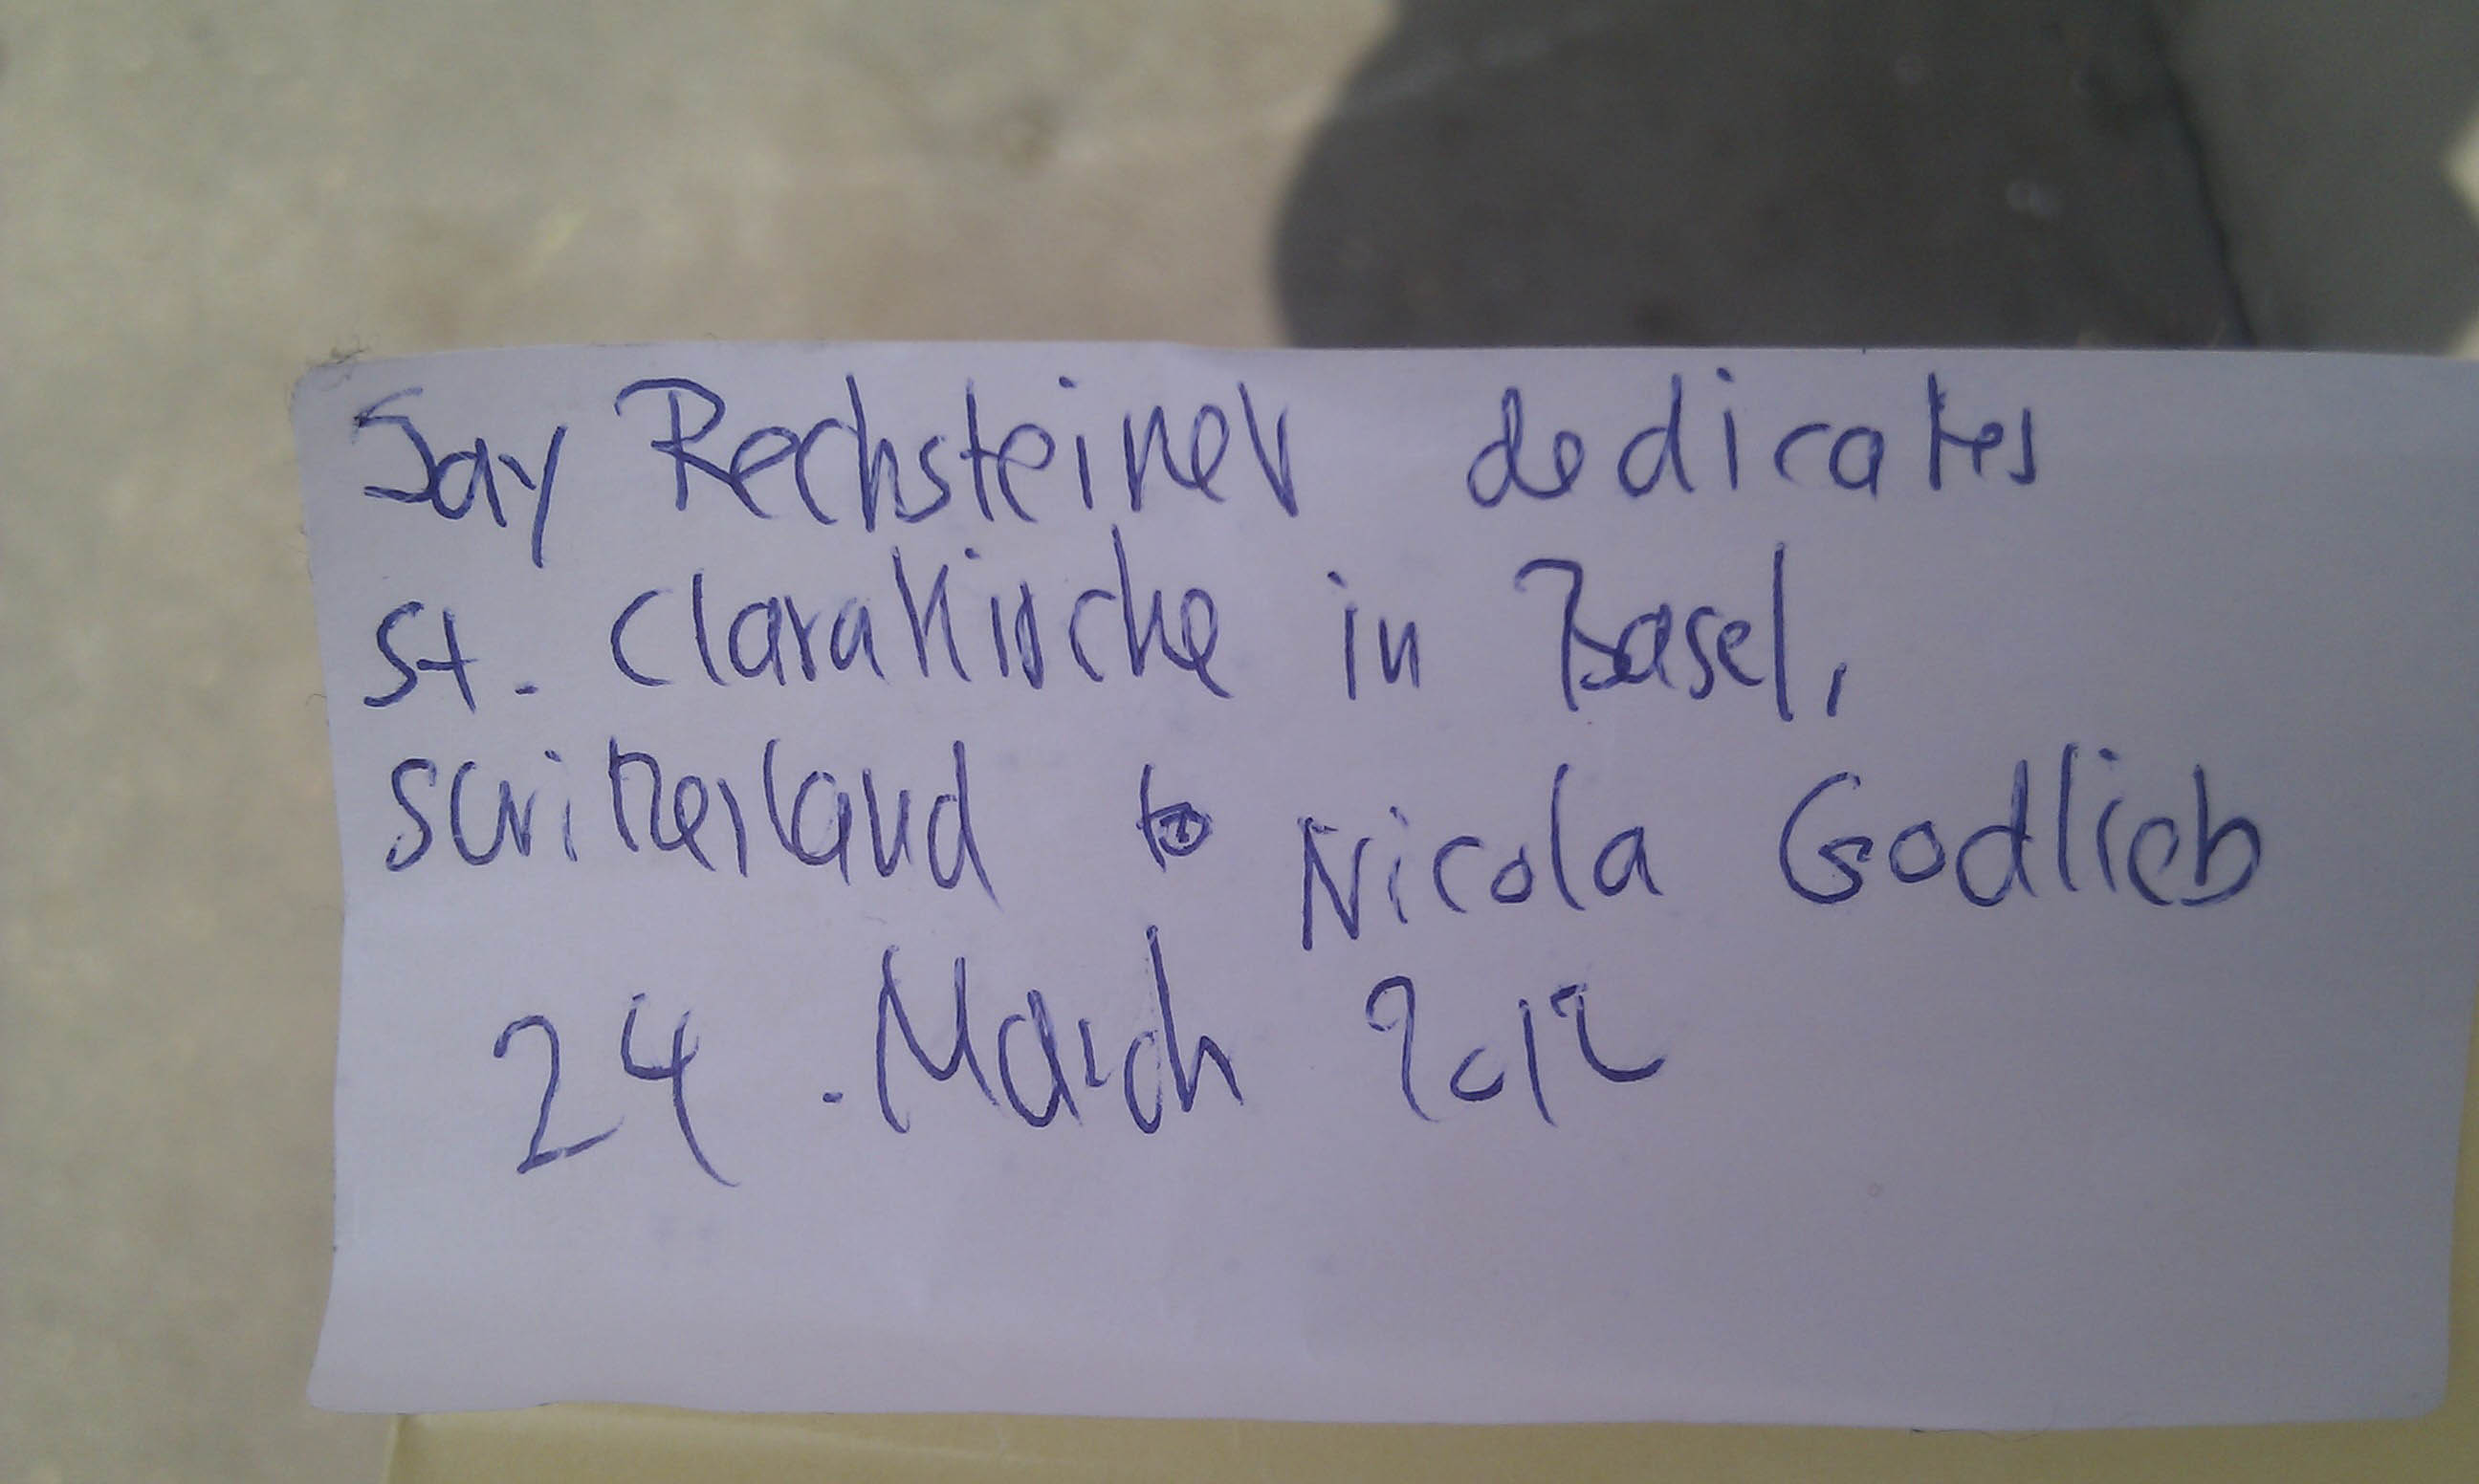 Jay Rechsteiner dedicates
St. Clarakirche in Basel,
Switzerland to Nicola Godlieb
24. March 2012